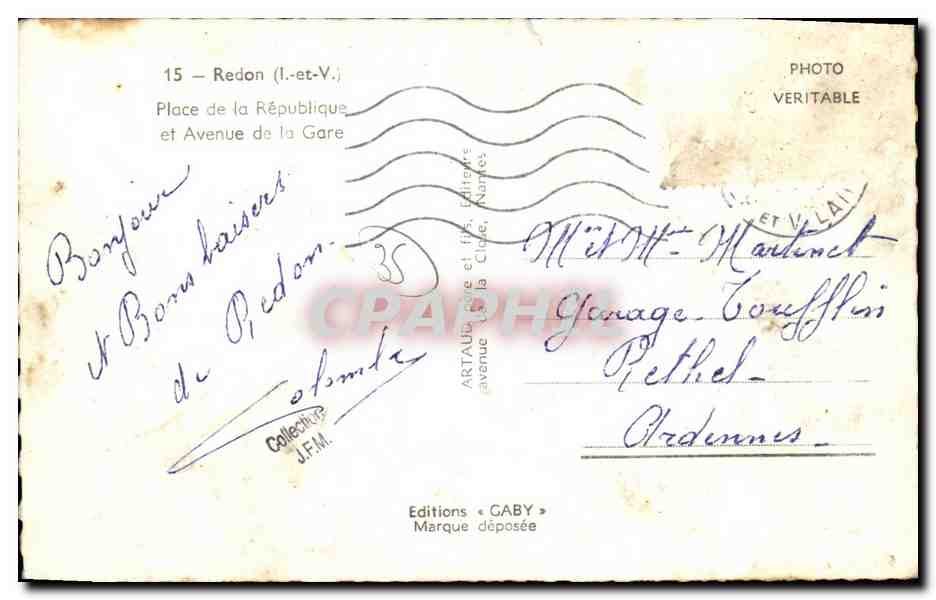 15 — Redon (I.-et-V.)
Place de la République
et Avenue de la Gare
PHOTO
VERITABLE
ET VILAI
Bonjour
et Bons baisers
de Redon.
Colombe
35
Collection
J.F.M.
ARTAUD père et fils, Editeurs
avenue de la Close, Nantes
Mr et Mme Martinet
Garage Toufflin
Rethel
Ardennes
CPAPHIL
Editions « GABY »
Marque déposée